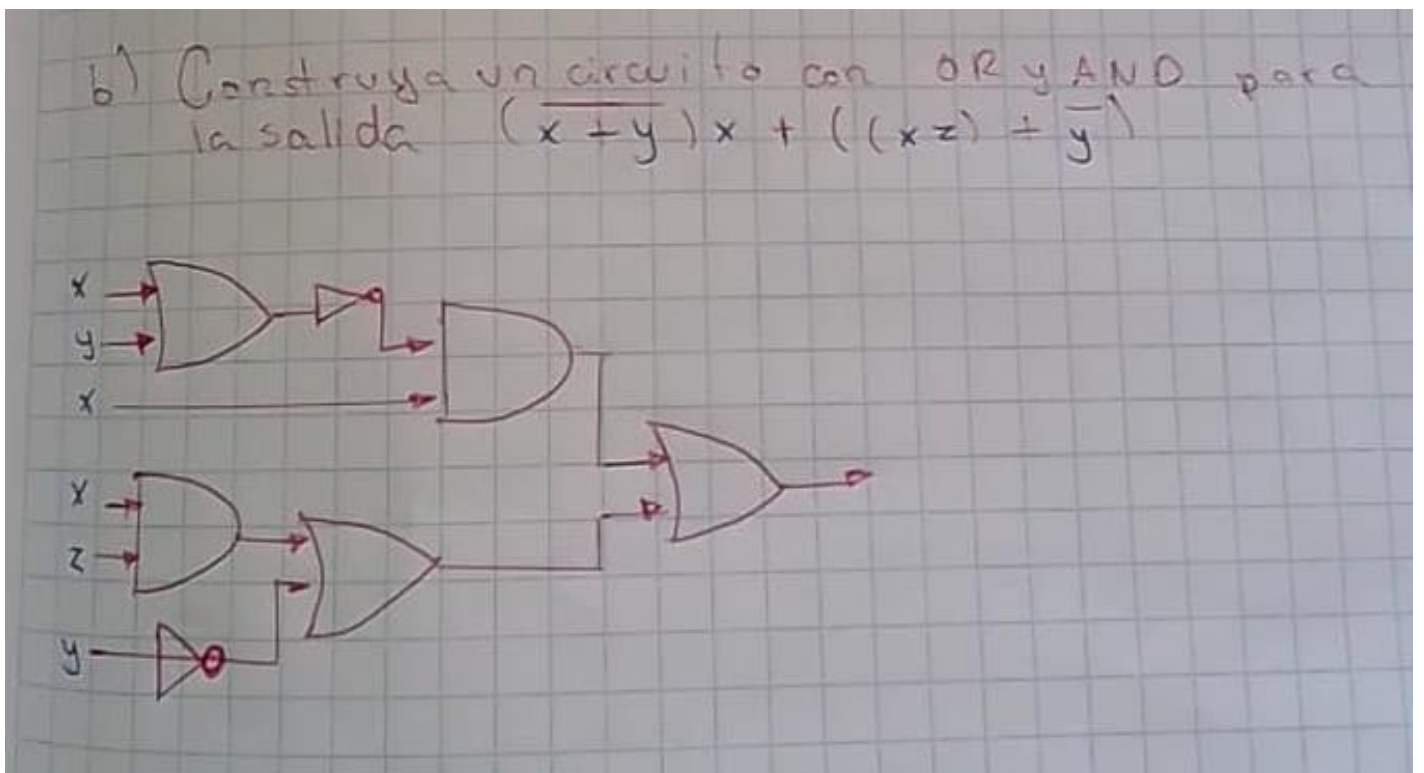 b) Construya un circuito con OR y AND para
la salida (x̅ ̅+̅ ̅y̅)x + ((xz) + y̅)
x
y
x
x
z
y